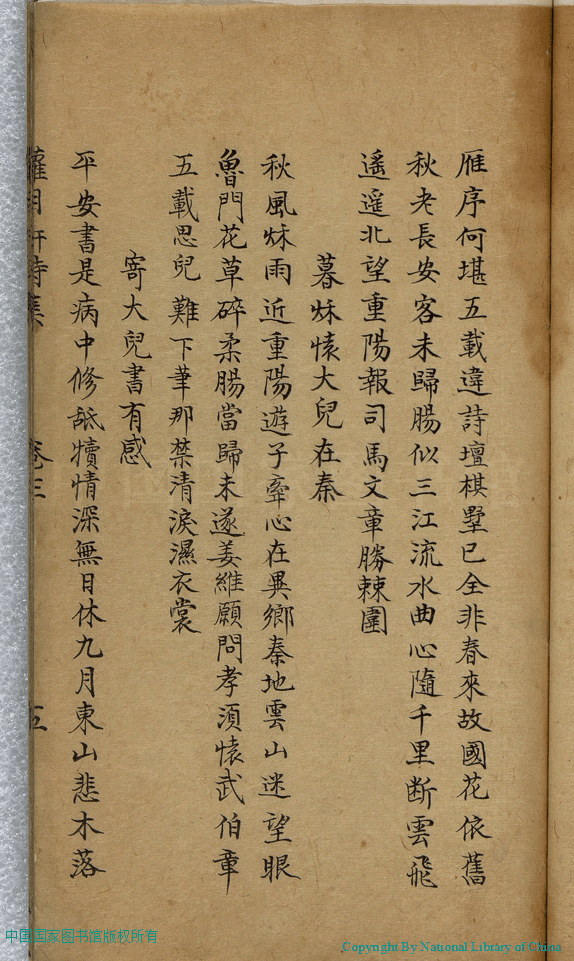 雁序何堪五載違詩壇棋墅已全非春來故國花依舊
秋老長安客未歸腸似三江流水曲心隨千里断雲飛
遥遥北望重陽報司馬文章勝棘圍
暮秌懐大兒在秦
秋風秌雨近重陽遊子牽心在異鄉秦地雲山迷望眼
魯門花草碎柔腸當歸未遂姜維願問孝須懐武伯章
五載思兒難下筆那禁清淚濕衣裳
寄大兒書有感
平安書是病中修舐犢情深無日休九月東山悲木落
卷三
五
中国国家图书馆版权所有
Copyright By National Library of China